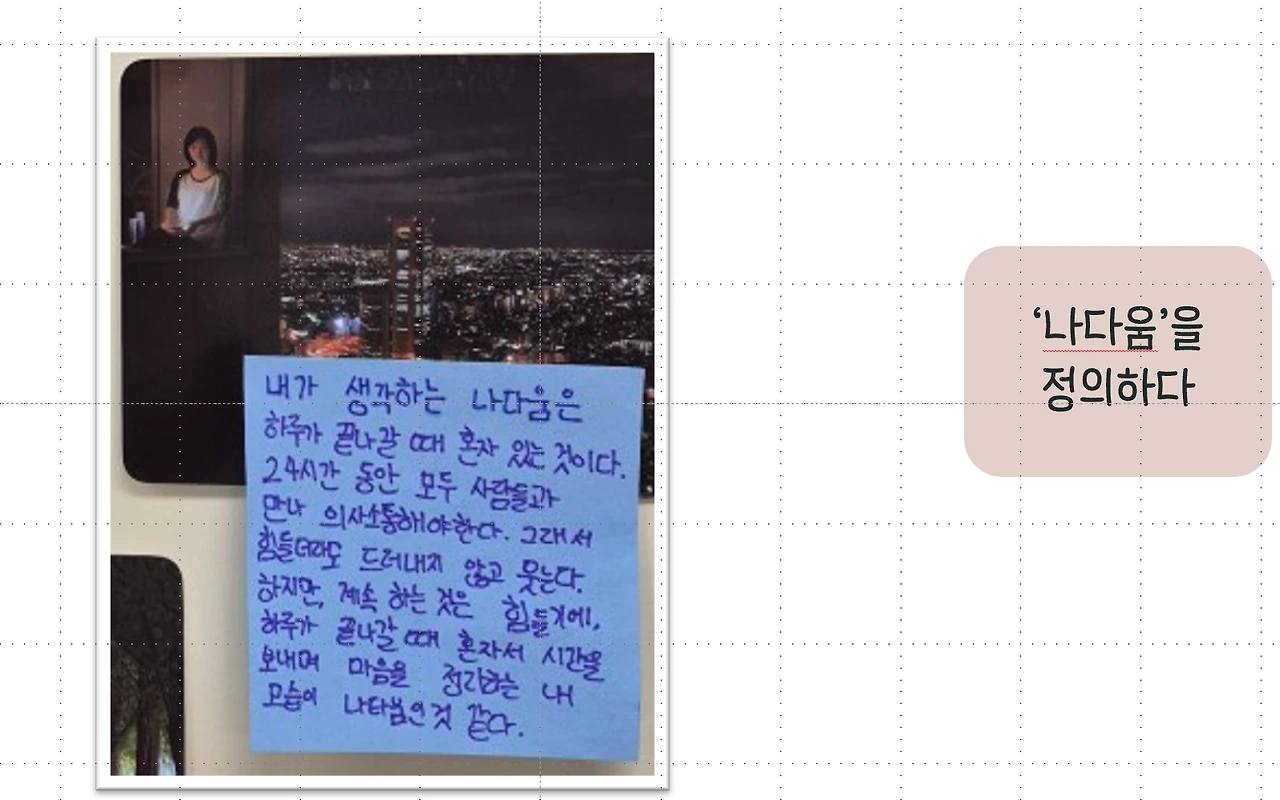 내가 생각하는 나다움은
하루가 끝나갈 때 혼자 있는 것이다.
24시간 동안 모두 사람들과
만나 의사소통해야한다. 그래서
힘들더라도 드러내지 않고 웃는다.
하지만, 계속 하는 것은 힘들기에,
하루가 끝나갈 때 혼자서 시간을
보내며 마음을 정리하는 내
모습이 나다움인 것 같다.
‘나다움’을
정의하다